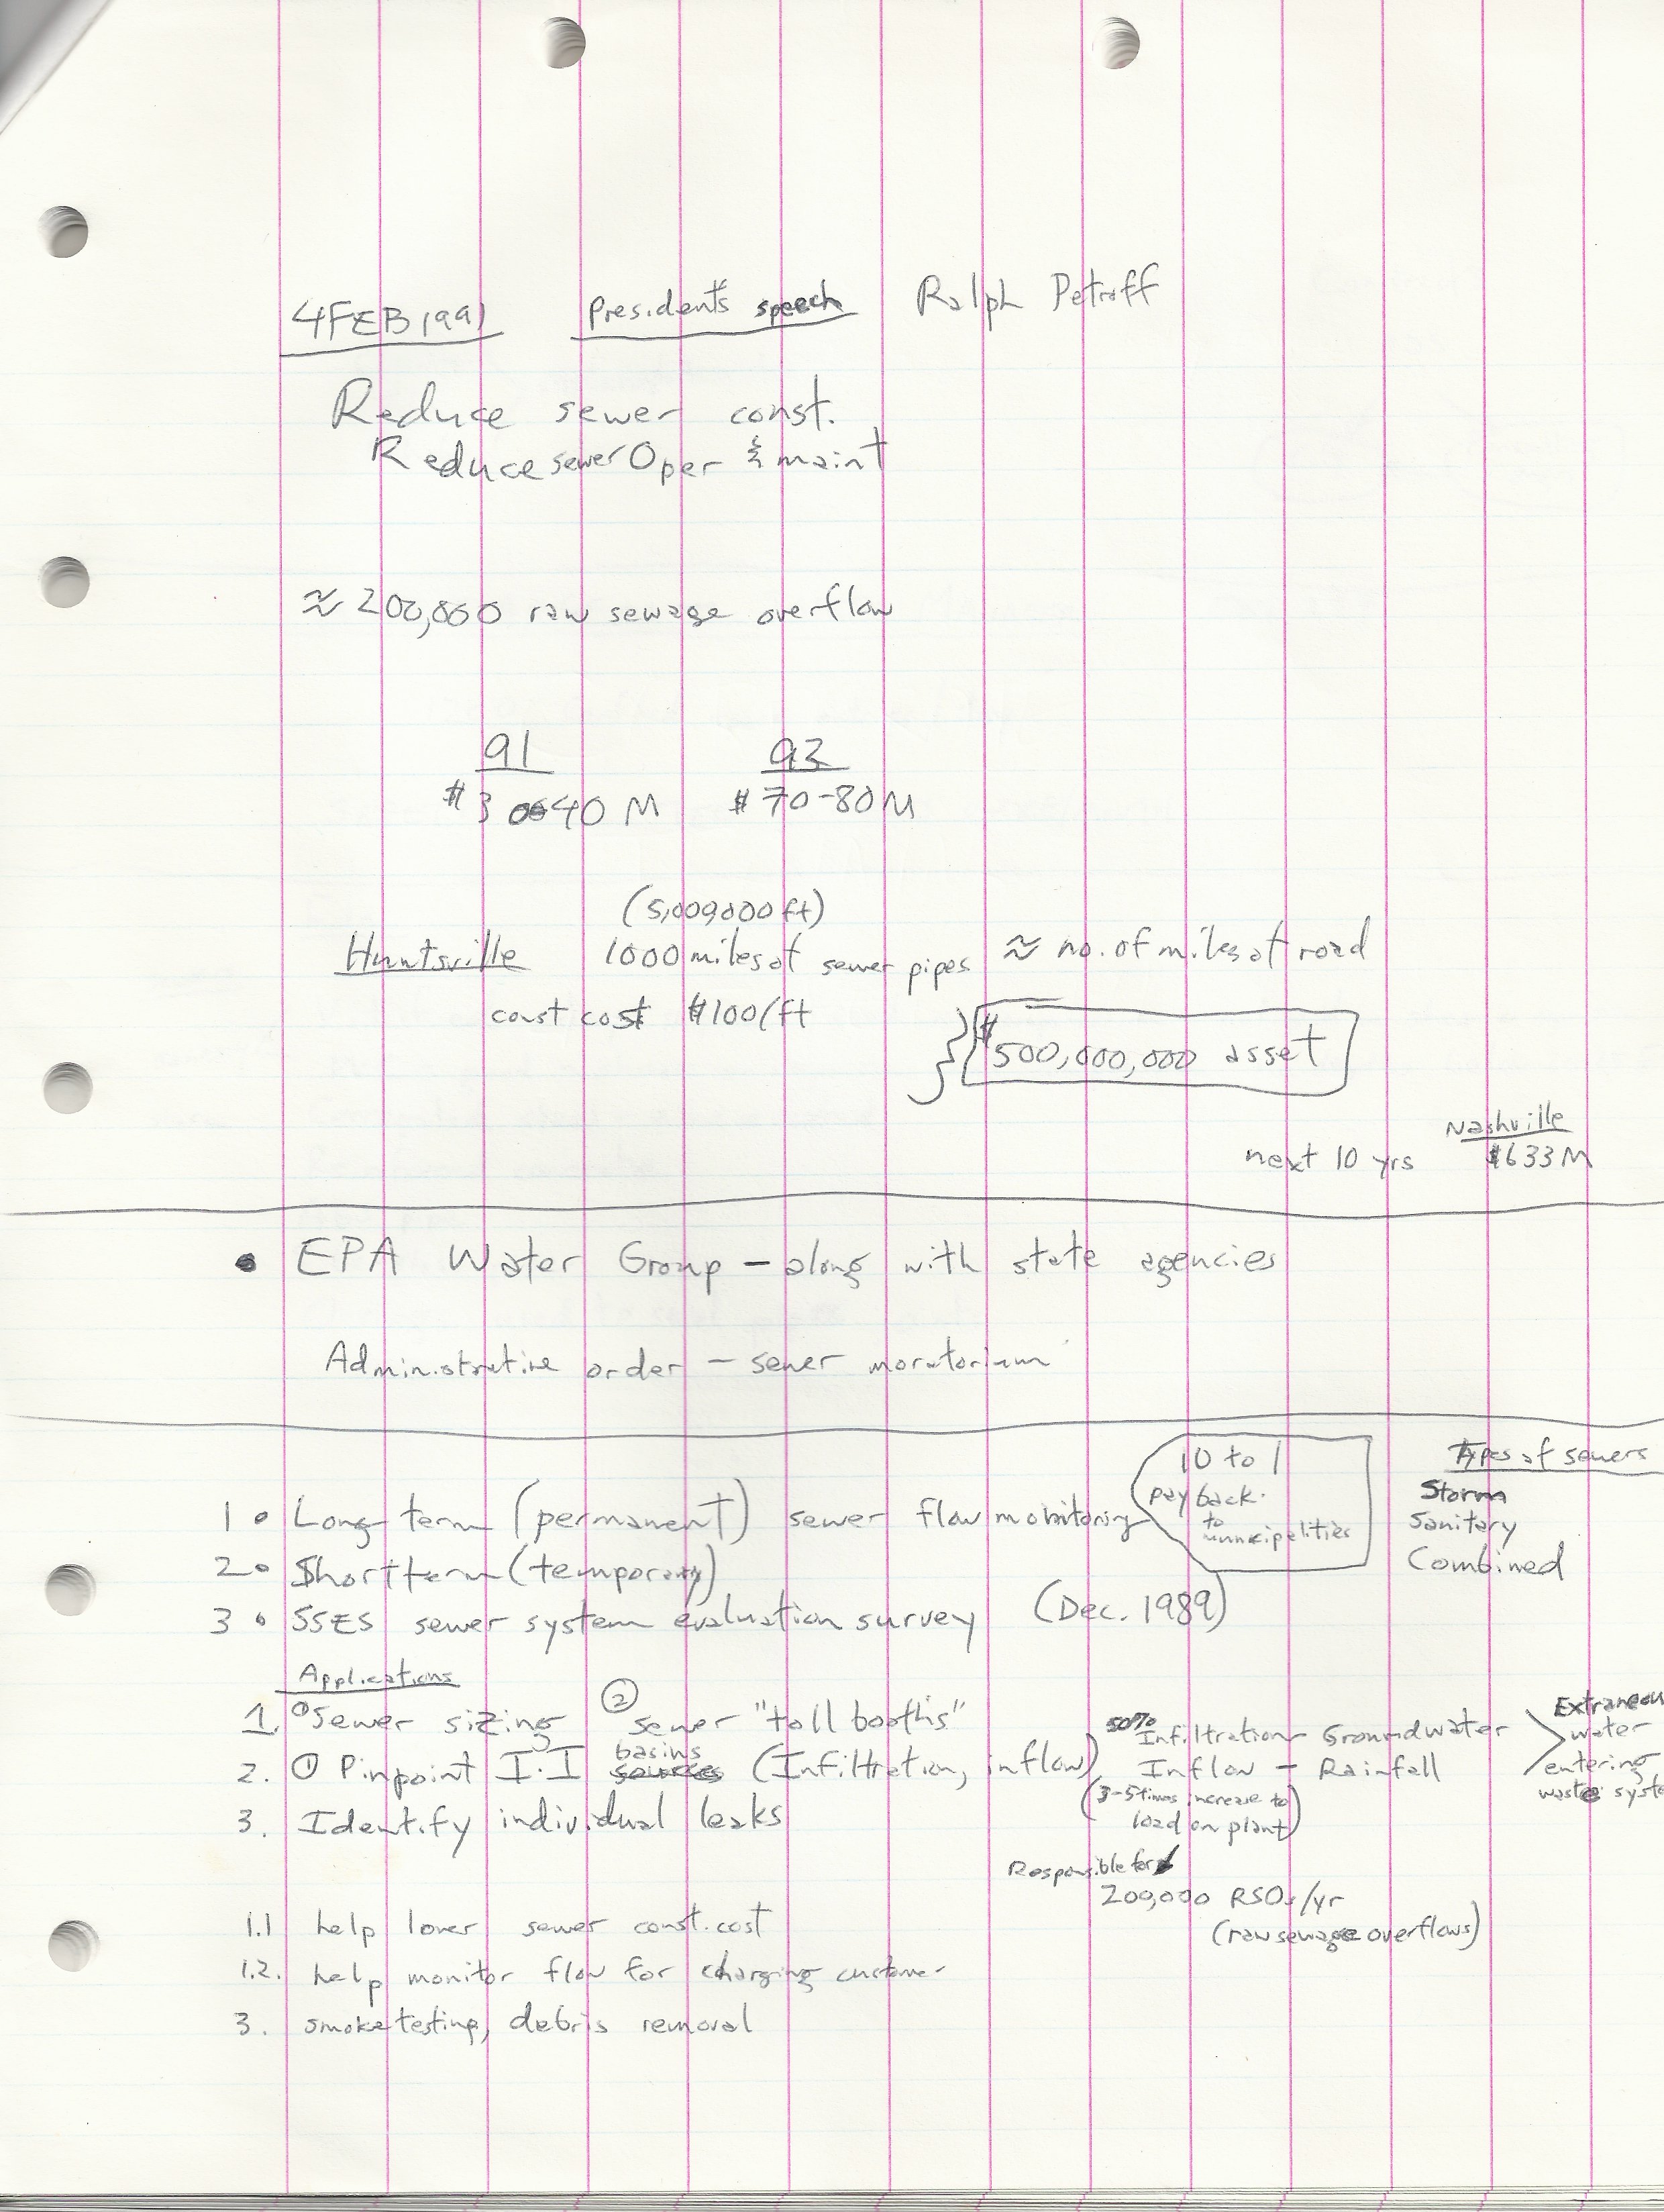 4FEB1991 President's speech Ralph Petroff
Reduce sewer const.
Reduce sewer Oper & maint
≈ 200,000 raw sewage overflow
91 92
$30-40 M $70-80M
(5,000,000 ft)
Huntsville 1000 miles of sewer pipes ≈ no. of miles of road
const cost $100/ft
$500,000,000 asset
Nashville
next 10 yrs $633M
• EPA Water Group - along with state agencies
Administrative order - sewer moratorium
10 to 1
payback
to
municipalities
Types of sewers
Storm
Sanitary
Combined
1 • Long term (permanent) sewer flow monitoring
2 • Short term (temporary)
3 • SSES sewer system evaluation survey (Dec. 1989)
Applications
1. ① Sewer sizing ② sewer "toll booths"
2. ① Pinpoint I.I basins sources (Infiltration, inflow)
3. Identify individual leaks
50% Infiltration - Groundwater
Inflow - Rainfall
(3-5 times increase to
load on plant)
Extraneou
water
entering
waste syste
Responsible for
200,000 RSOs/yr
(raw sewage overflows)
1.1 help lower sewer const. cost
1.2. help monitor flow for charging customer
3. smoke testing, debris removal